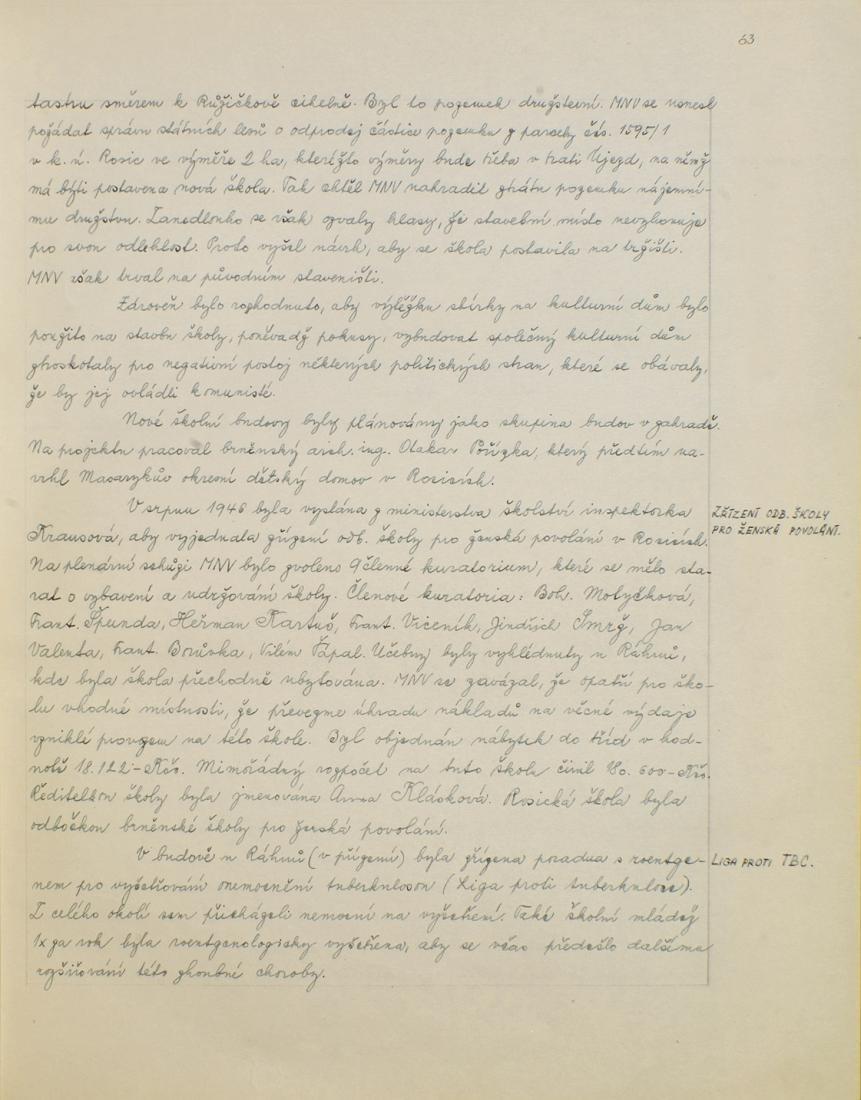 63
tastru směrem k Růžičkově cihelně. Byl to pozemek družstevní. MNV se usnesl
požádat správu státních lesů o odprodej částice pozemku z parcely čís. 1595/1
v k. ú. Rosic ve výměře 2 ha, kterýžto výměry bude třeba v trati Újezd, na němž
má býti postavena nová škola. Tak chtěl MNV nahradit ztrátu pozemku nájemní-
mu družstvu. Zanedlouho se však ozvaly hlasy, že stavební místo nevyhovuje
pro svou odlehlost. Proto vyšel návrh, aby se škola postavila na tržišti.
MNV však trval na původním staveništi.
Zároveň bylo rozhodnuto, aby výtěžku sbírky na kulturní dům bylo
použito na stavbu školy, poněvadž pokusy, vybudovat společný kulturní dům
ztroskotaly pro negativní postoj některých politických stran, které se obávaly,
že by jej ovládli komunisté.
Nové školní budovy byly plánovány jako skupina budov v zahradě.
Na projektu pracoval brněnský arch. ing. Otakar Pořízka, který předtím na-
vrhl Masarykův okresní dětský domov v Rosicích.
V srpnu 1946 byla vyslána z ministerstva školství inspektorka
ZŘÍZENÍ ODB. ŠKOLY
PRO ŽENSKÁ POVOLÁNÍ.
Krausová, aby vyjednala zřízení odb. školy pro ženská povolání v Rosicích.
Na plenární schůzi MNV bylo zvoleno 9členné kuratorium, které se mělo sta-
rat o vybavení a udržování školy. Členové kuratoria: Boh. Motyčková,
Frant. Špunda, Heřman Kartuš, Frant. Viceník, Jindřich Smrž, Jan
Valenta, Frant. Borůvka, Vilém Pápal. Učebny byly vyhlédnuty u Ráhnů,
kde byla škola přechodně ubytována. MNV se zavázal, že opatří pro ško-
lu vhodné místnosti, že převezme úhradu nákladů na věcné výdaje
vzniklé provozem na této škole. Byl objednán nábytek do tříd v hod-
notě 18.122-Kčs. Mimořádný rozpočet na tuto školu činil 80.600-Kčs.
Ředitelkou školy byla jmenována Anna Klásková. Rosická škola byla
odbočkou brněnské školy pro ženská povolání.
V budově u Ráhnů (v přízemí) byla zřízena poradna s roentge-
LIGA PROTI TBC.
nem pro vyšetřování onemocnění tuberkulosou (Liga proti tuberkulose).
Z celého okolí sem přicházeli nemocní na vyšetření. Také školní mládež
1x za rok byla roentgenologicky vyšetřena, aby se včas předešlo dalšímu
rozšiřování této zhoubné choroby.